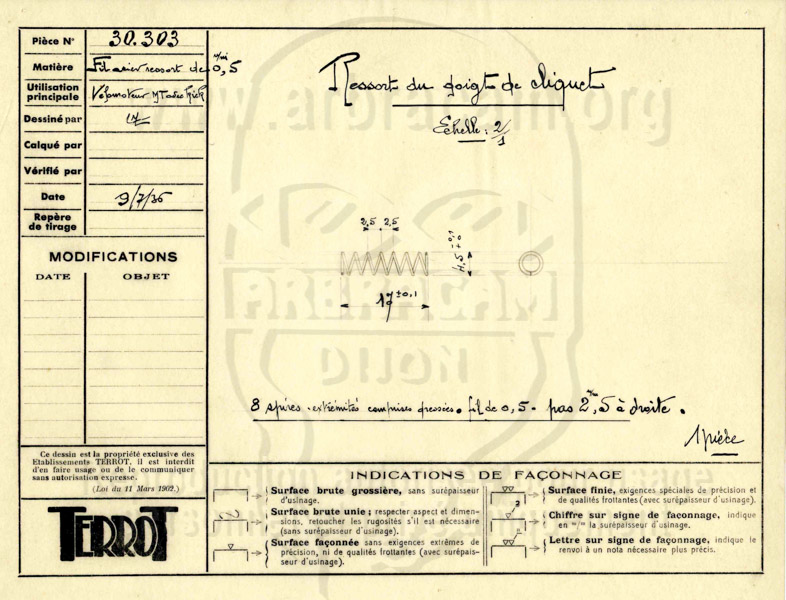 Pièce N° 30.303
Matière Fil acier ressort de 0,5 m/m
Utilisation
principale Vélomoteur
Dessiné par
Calqué par
Vérifié par
Date 9/7/36
Repère
de tirage
MODIFICATIONS
DATE OBJET
Ce dessin est la propriété exclusive des
Etablissements TERROT, il est interdit
d'en faire usage ou de le communiquer
sans autorisation expresse.
(Loi du 11 Mars 1902.)
TERROT
Ressort du doigt de cliquet
Echelle : 2/1
2,5 2,5
4,5 -0,1 +0
17 ±0,1
8 spires - extrémités comprises dressées. fil de 0,5 - pas 2 m/m,5 à droite.
1 pièce
INDICATIONS DE FAÇONNAGE
Surface brute grossière, sans surépaisseur
d'usinage.
Surface brute unie ; respecter aspect et dimen-
sions, retoucher les rugosités s'il est nécessaire
(sans surépaisseur d'usinage).
Surface façonnée sans exigences extrêmes de
précision, ni de qualités frottantes (avec surépais-
seur d'usinage).
Surface finie, exigences spéciales de précision et
de qualités frottantes (avec surépaisseur d'usinage).
Chiffre sur signe de façonnage, indique
en m/m la surépaisseur d'usinage.
Lettre sur signe de façonnage, indique le
renvoi à un nota nécessaire plus précis.
www.arbracam.org
ARBRACAM
DIJON